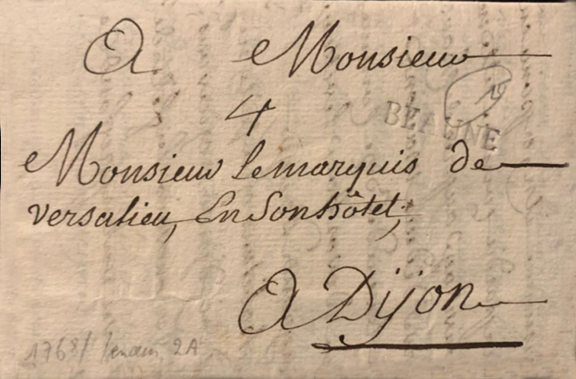 A Monsieur
4
BEAUNE
Monsieur le marquis de
versalieu, En Son hôtel,
A Dijon
1768/ Lenain 2A